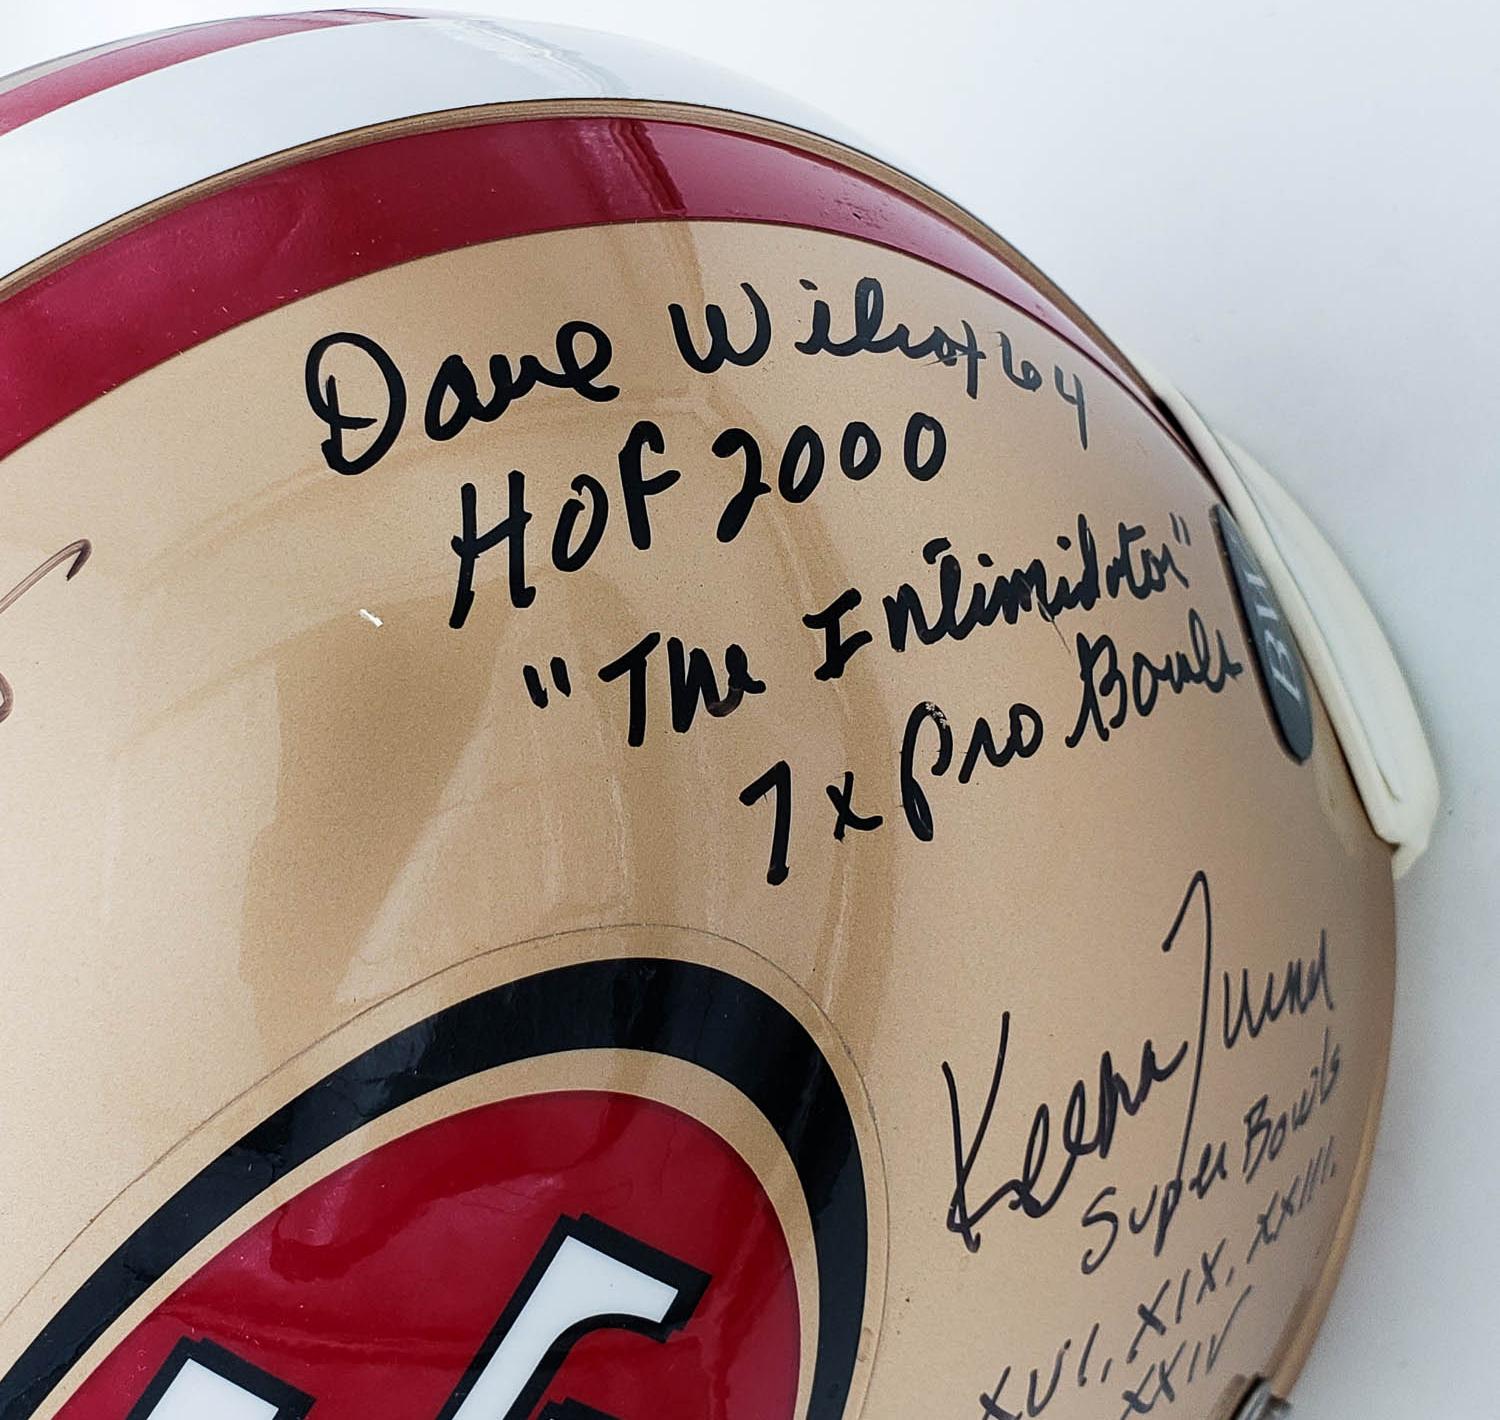 Dave Wilcox 64
HOF 2000
"The Intimidator"
7x Pro Bowls
Keena Turner
Super Bowls
XVI, XIX, XXIII,
XXIV